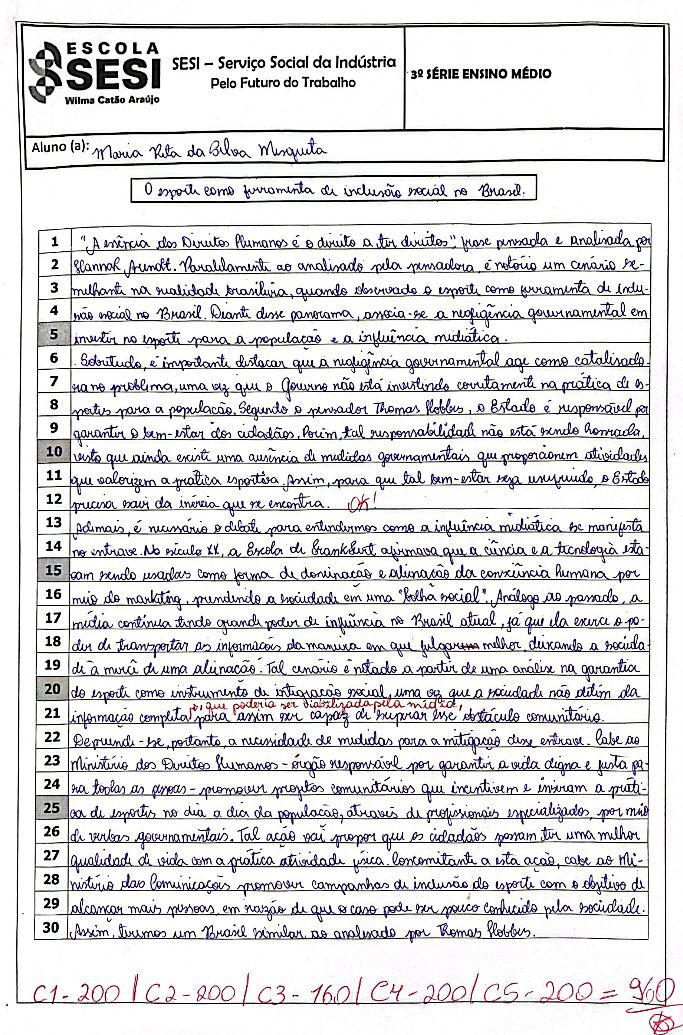 ESCOLA
SESI
Wilma Catão Araújo
SESI – Serviço Social da Indústria
Pelo Futuro do Trabalho
3º SÉRIE ENSINO MÉDIO
Aluno (a): Maria Rita da Silva Mesquita
O esporte como ferramenta de inclusão social no Brasil.
1 "A essência dos Direitos Humanos é o direito a ter direitos" frase pensada e analisada por
2 Hannah Arendt. Paralelamente ao analisado pela pensadora, é notório um cenário se-
3 melhante na realidade brasileira, quando observado o esporte como ferramenta de inclu-
4 são social no Brasil. Diante desse panorama, associa-se a negligência governamental em
5 investir no esporte para a população e a influência midiática.
6 Sobretudo, é importante destacar que a negligência governamental age como catalisado-
7 ra no problema, uma vez que o Governo não está investindo corretamente na prática de es-
8 portes para a população. Segundo o pensador Thomas Hobbes, o Estado é responsável por
9 garantir o bem-estar dos cidadãos. Porém, tal responsabilidade não está sendo honrada,
10 visto que ainda existe uma ausência de medidas governamentais que proporcionem atividades
11 que valorizem a prática esportiva. Assim, para que tal bem-estar seja usufruído, o Estado
12 precisa sair da inércia que se encontra. OK!
13 Ademais, é necessário o debate para entendermos como a influência midiática se manifesta
14 no entrave. No século XX, a Escola de Frankfurt afirmava que a ciência e a tecnologia esta-
15 vam sendo usadas como forma de dominação e alienação da consciência humana por
16 meio do marketing, prendendo a sociedade em uma "bolha social". Análogo ao passado, a
17 mídia continua tendo grande poder de influência no Brasil atual, já que ela exerce o po-
18 der de transportar as informações da maneira em que julgar melhor, deixando a socieda-
19 de à mercê de uma alienação. Tal cenário é notado a partir de uma análise na garantia
20 do esporte como instrumento de integração social, uma vez que a sociedade não detém da
o que poderia ser viabilizada pela mídia,
21 informação completa para assim ser capaz de superar esse obstáculo comunitário.
22 Depreende-se, portanto, a necessidade de medidas para a mitigação desse entrave. Cabe ao
23 Ministério dos Direitos Humanos - órgão responsável por garantir a vida digna e justa pa-
24 ra todas as pessoas - promover projetos comunitários que incentivem e insiram a práti-
25 ca de esportes no dia a dia da população, através de profissionais especializados, por meio
26 de verbas governamentais. Tal ação vai propor que os cidadãos possam ter uma melhor
27 qualidade de vida com a prática atividade física. Concomitante a esta ação, cabe ao Mi-
28 nistério das Comunicações promover campanhas de inclusão do esporte com o objetivo de
29 alcançar mais pessoas, em razão de que o caso pode ser pouco conhecido pela sociedade.
30 Assim, teremos um Brasil similar ao analisado por Thomas Hobbes.
C1-200 / C2-200 / C3-160 / C4-200 / C5-200 = 960